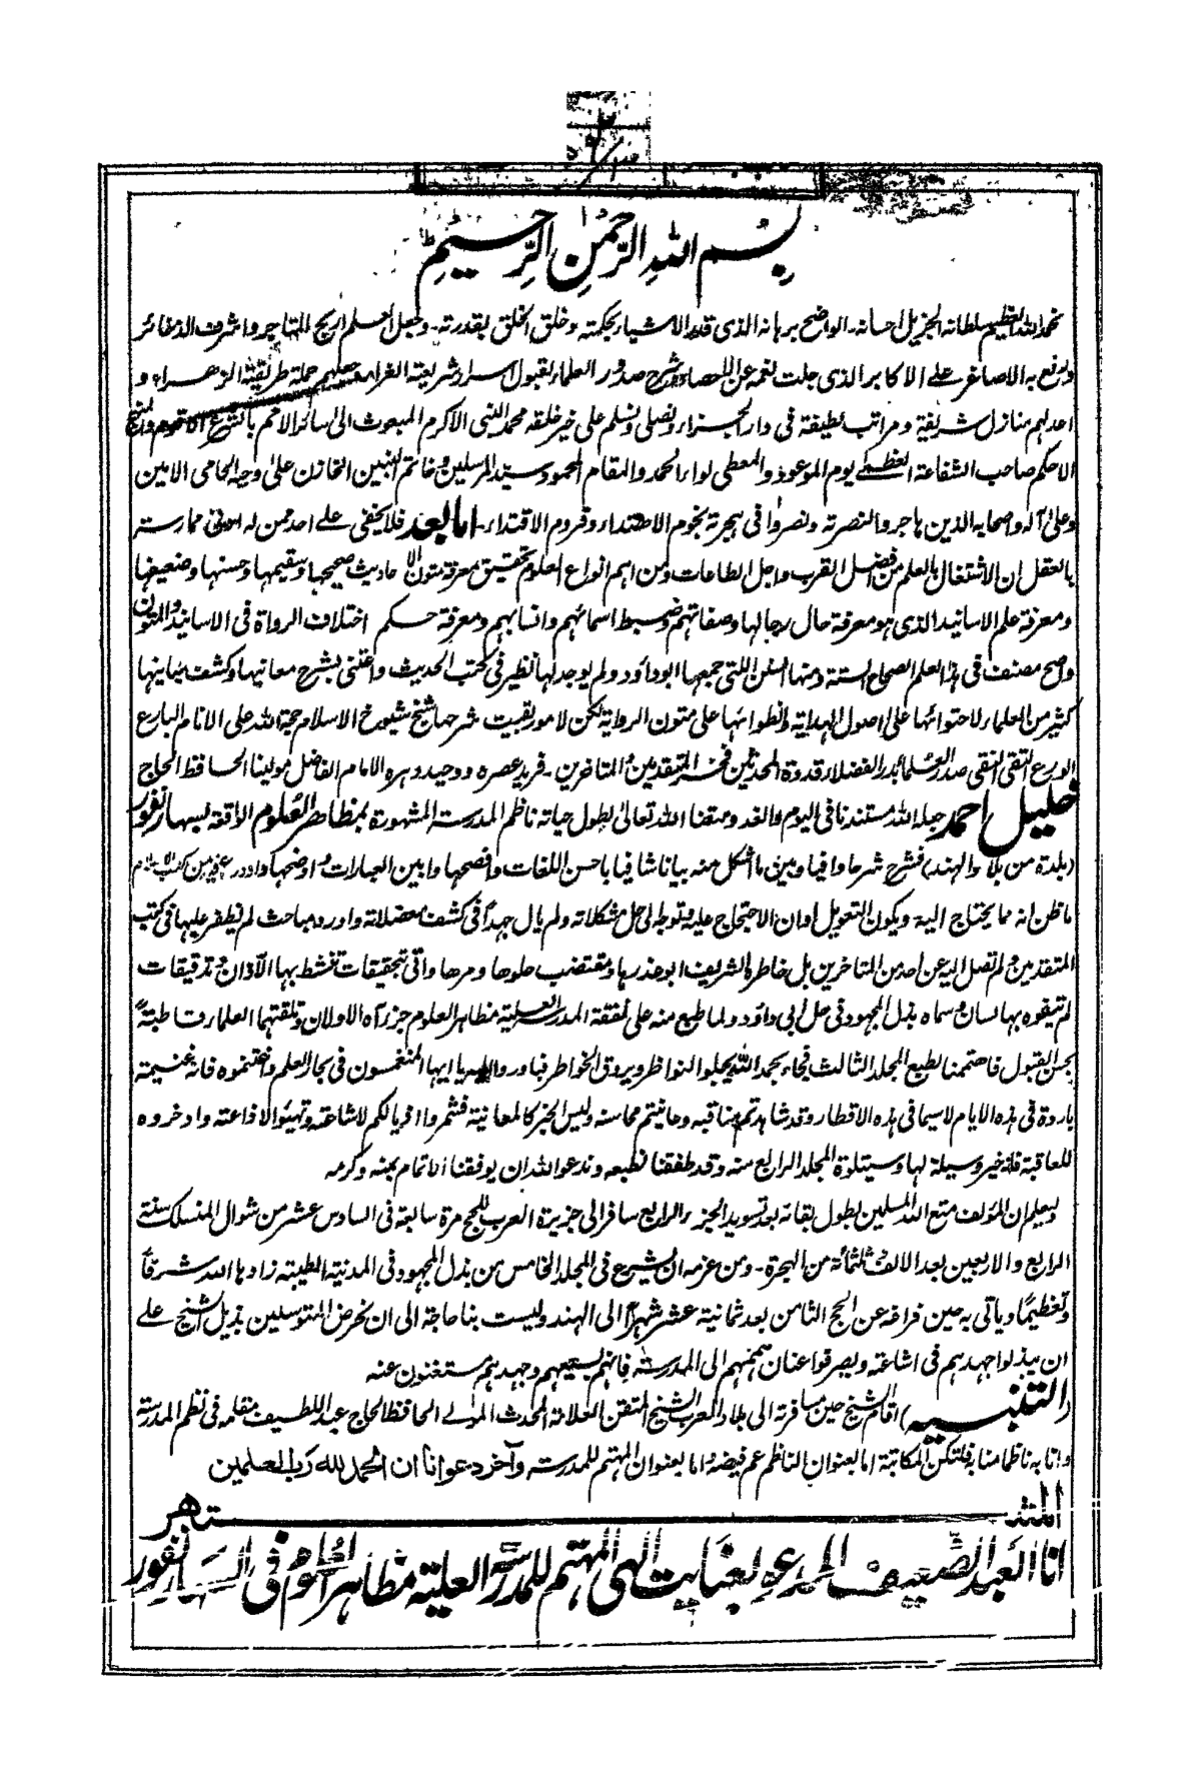 بسم الله الرحمن الرحيم
نحمد الله العظيم سلطانه الجزيل احسانه۔ الواضح برهانه الذى قدر الاشياء بحكمته وخلق الخلق بقدرته۔ وجعل العلم اربح المتاجر واشرف الذخائر
ورفع به الاصاغر على الاكابر الذى جلت نعمه عن الاحصاء وشرح صدور العلماء لقبول اسرار شريعته الغراء وجعلهم حملة طريقته الزهراء و
اعد لهم منازل شريفة ومراتب لطيفة فى دار الجزاء ونصلى ونسلم على خير خلقه محمد النبى الاكرم المبعوث الى سائر الامم بالشرع الاقوم والمنهج
الاحكم صاحب الشفاعة العظمى يوم الموعود والمعطى لواء الحمد والمقام المحمود سيد المرسلين وخاتم النبيين الخازن على وحيه الحامى الامين
وعلى آله وصحابه الذين هاجروا لنصرته ونصروا فى هجرته نجوم الاهتداء وقروم الاقتداء۔ امابعد فلا يخفى على احد ممن له ادنى ممارسة
بالعقل ان الاشتغال بالعلم من افضل القرب واجل الطاعات ومن اهم انواع العلوم تحقيق معرفة متون الاحاديث صحيحها وسقيمها وحسنها وضعيفها
ومعرفة علم الاسانيد الذى هو معرفة حال رجالها وصفاتهم وضبط اسمائهم وانسابهم ومعرفة حكم اختلاف الرواة فى الاسانيد والمتون
واصح مصنف فى هذا العلم الصحاح الستة ومنها السنن اللتى جمعها ابوداود ولم يوجد لها نظير فى كتب الحديث واعتنى بشرح معانيها وكشف مبانيها
كثير من العلماء لاحتوائها على اصول الهداية وانطوائها على متون الرواية لكن لامور بقيت شرحها شيخ شيوخ الاسلام حجة الله على الانام البارع
الورع التقى النقى صدر العلماء بدر الفضلاء قدوة المحدثين فخر المتقدمين والمتاخرين۔ فريد عصره ووحيد دهره الامام الفاضل مولينا الحافظ الحاج
خليل احمد جعله الله مستندنا فى اليوم والغد ومتعنا الله تعالى بطول حياته ناظم المدرسة المشهورة بمظاهر العلوم الواقعة بسهارنفور
(بلدة من بلاد الهند) فشرح شرحا وافيا وبين ما اشكل منه بيانا شافيا باحسن اللغات وافصحها وابين العبارات واوضحها واورد من كتب
ما ظن انه مما يحتاج اليه ويكون التعويل اوان الاحتجاج عليه وتوجه الى حل مشكلاته ولم يال جهدا فى كشف معضلاته واورد مباحث لم نظفر عليها فى كتب
المتقدمين ولم تصل اليه عن احد من المتاخرين بل خاطره الشريف ابو عذرها ومقتضب حلوها ومرها واتى بتحقيقات تنشط بها الآذان وتدقيقات
لم تتفوه بها لسان وسماه بذل المجهود فى حل ابى داؤد ولما طبع منه على نفقة المدرسة العلية مظاهر العلوم جزءاه الاولان وتلقتهما العلماء قاطبة
بحسن القبول فاهتممنا بطبع المجلد الثالث فجاء بحمد الله يجلوا النواظر ويروق الخواطر فبادروا اليه يا ايها المنغمسون فى بحار العلم واغتنموه فانه غنيمة
باردة فى هذه الايام لاسيما فى هذه الاقطار وقد شاهدتم مناقبه وعاينتم محاسنه وليس الخبر كالمعاينة فشمروا اذيالكم لاشاعته وتهيئوا لاذاعته وادخروه
للعاقبة فانه خير وسيلة لها وسيتلوه المجلد الرابع منه وقد طفقنا نطبعه وندعو الله ان يوفقنا الاتمام بمنه وكرمه
ليعلم ان المؤلف متع الله المسلمين بطول بقائه بعد تسويد الجزء الرابع سافر الى جزيرة العرب للحج مرة سابعة فى السادس عشر من شوال المنسلك سنة
الرابع والاربعين بعد الالف وثلثمائة من الهجرة۔ ومن عزمه ان يشرع فى المجلد الخامس من بذل المجهود فى المدينة الطيبة زادها الله شرفاً
وتعظيما وياتى به حين فراغه عن الحج الثامن بعد ثمانية عشر شهراً الى الهند وليست بنا حاجة الى ان نحرض المتوسلين بذيل الشيخ على
ان يبذلوا جهدهم فى اشاعته ويصرفوا عنان هممهم الى المدرسة فانهم بسعيهم وجهدهم مستغنون عنه
(التنبيه) اقام الشيخ حين مسافرته الى بلاد العرب الشيخ المتقن العلامة المحدث المولى الحافظ الحاج عبد اللطيف مقامه فى نظم المدرسة
وانابه ناظما منابه فلتكن المكاتبة اما بعنوان الناظم عم فيضه واما بعنوان المهتمم للمدرسة وآخر دعوانا ان الحمد لله رب العلمين
المشتهر
انا العبد الضعيف المدعو بعنايت الهى المهتمم للمدرسة العلية مظاهر العلوم فى السهارنفور